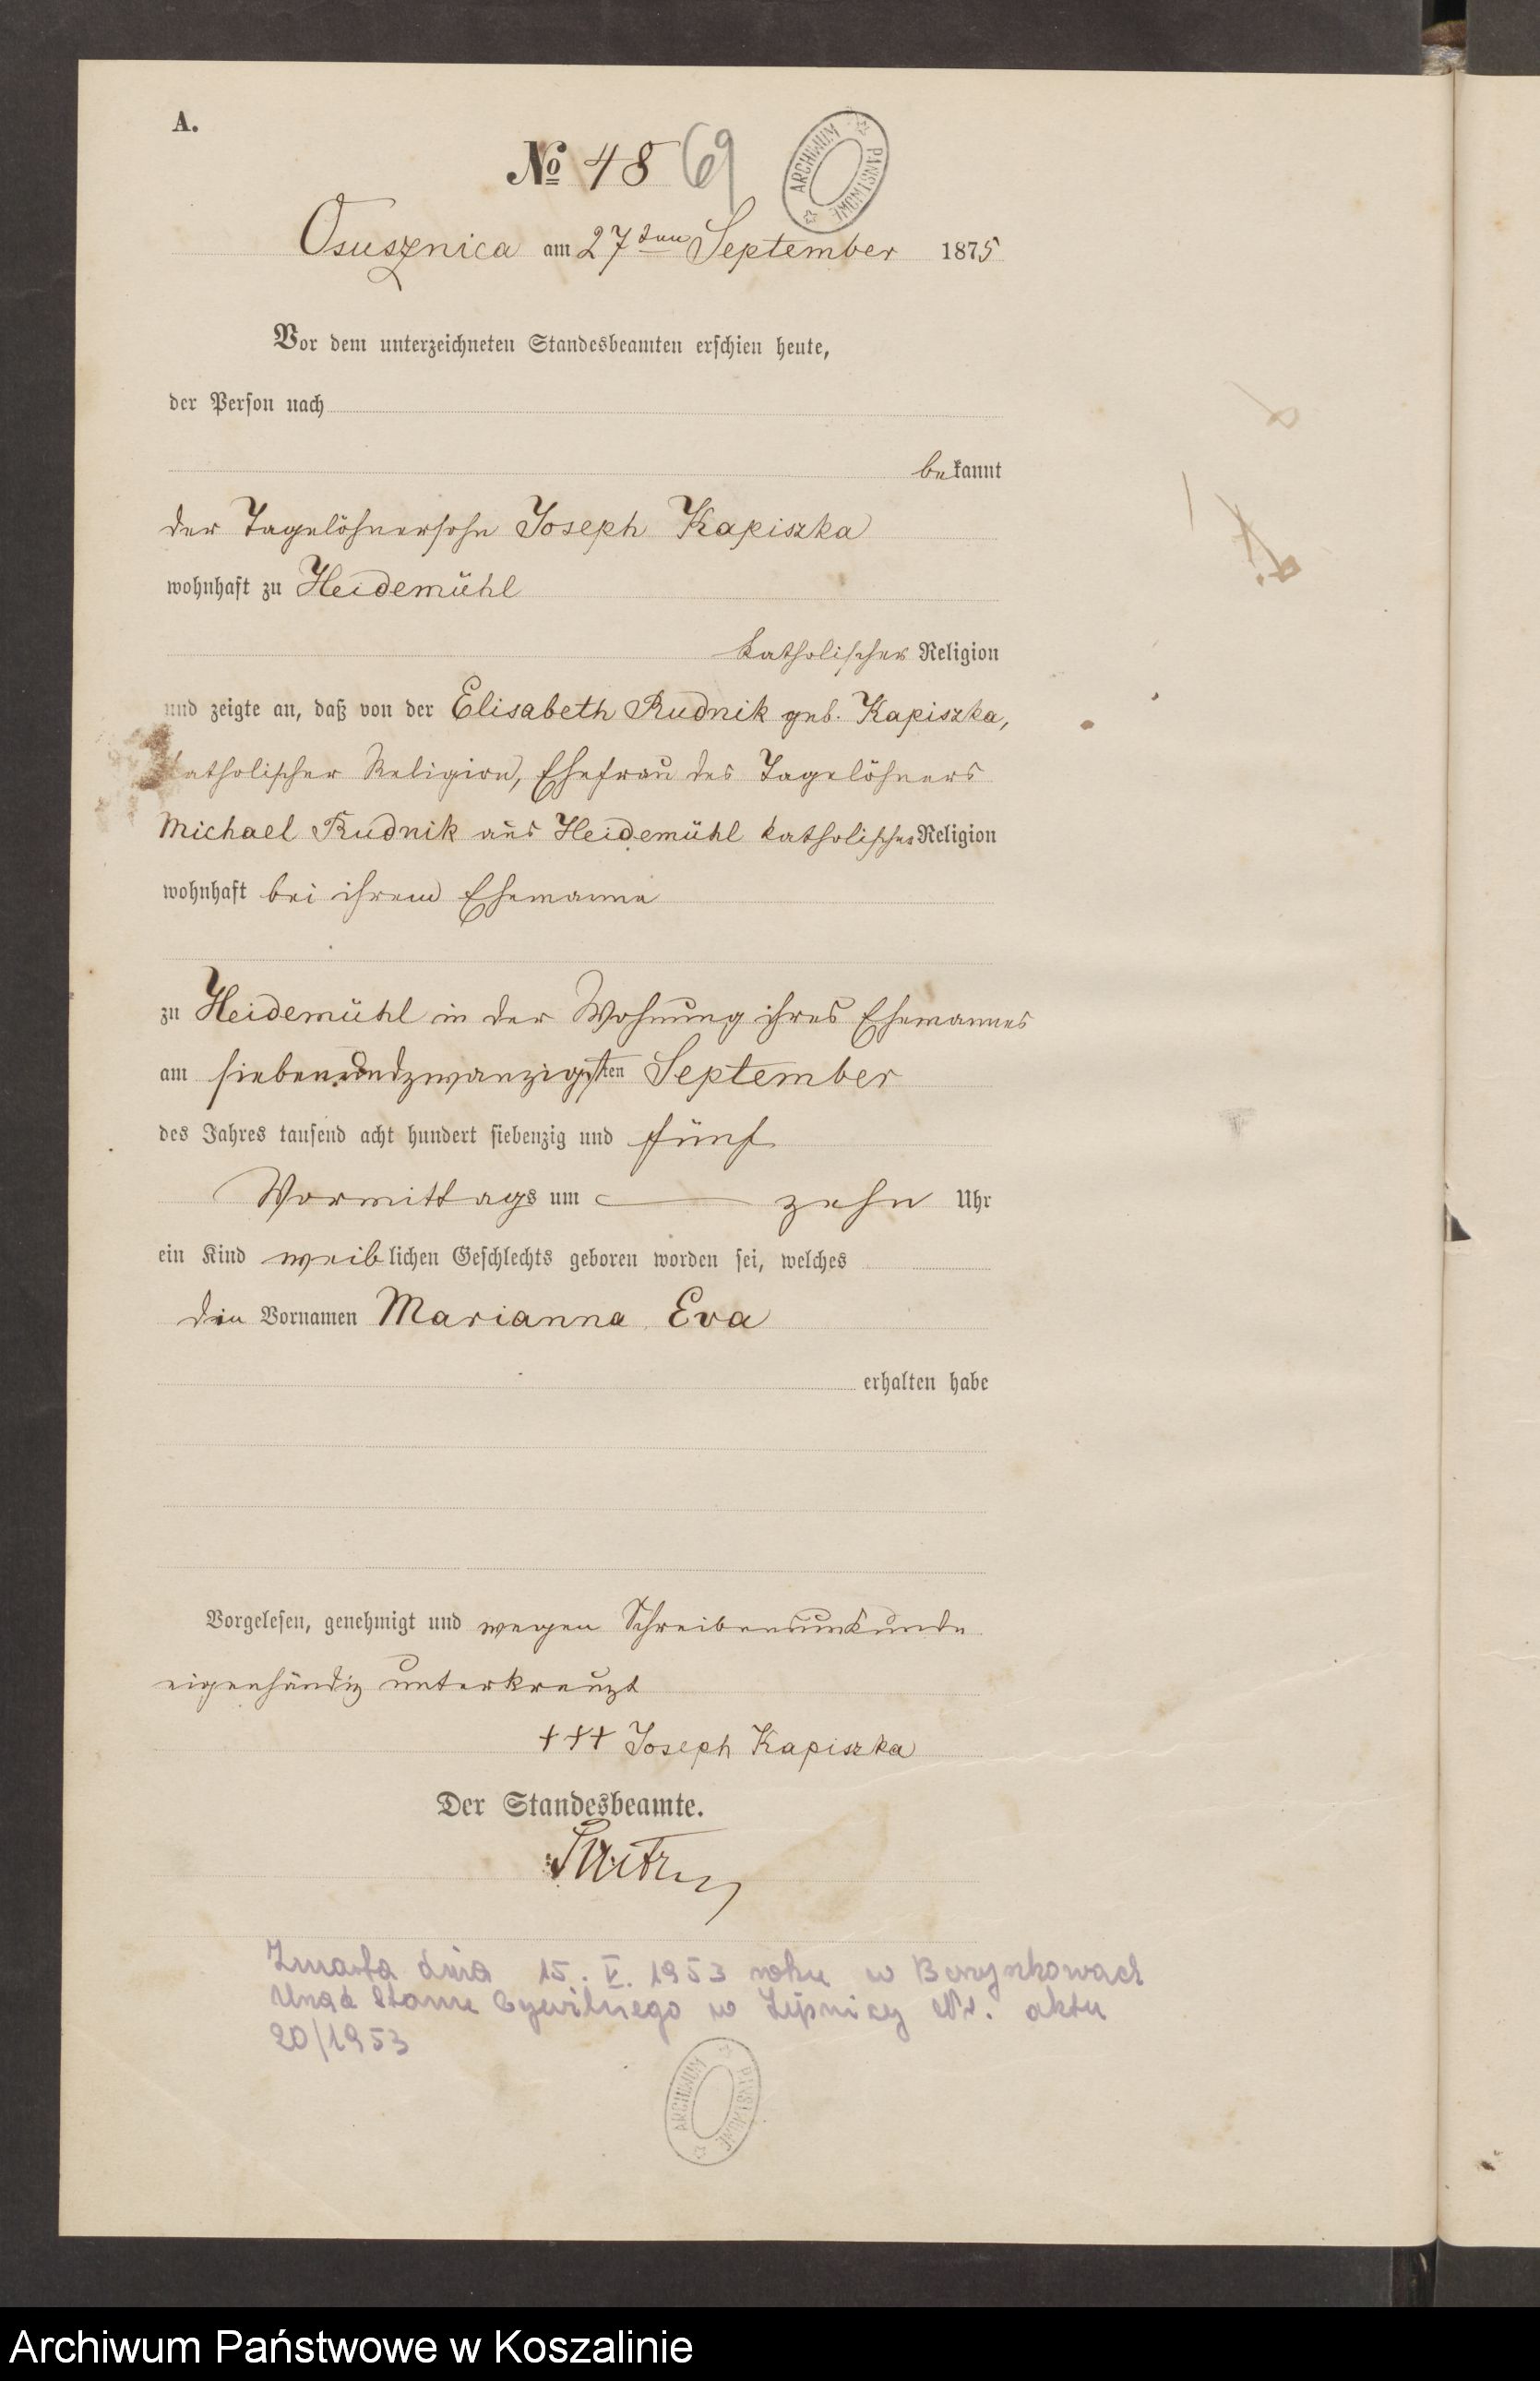 A.
№ 48 69
ARCHIWUM PAŃSTWOWE
Osusznica am 27ten September 1875
Vor dem unterzeichneten Standesbeamten erschien heute,
der Person nach
bekannt
der Tagelöhnersohn Joseph Kapiszka
wohnhaft zu Heidemühl
katholischer Religion
und zeigte an, daß von der Elisabeth Rudnik geb. Kapiszka,
katholischer Religion, Ehefrau des Tagelöhners
Michael Rudnik aus Heidemühl katholischer Religion
wohnhaft bei ihrem Ehemanne
zu Heidemühl in der Wohnung ihres Ehemannes
am siebenundzwanzigsten September
des Jahres tausend acht hundert siebenzig und fünf
Vormittags um zehn Uhr
ein Kind weiblichen Geschlechts geboren worden sei, welches
die Vornamen Marianna Eva
erhalten habe
Vorgelesen, genehmigt und wegen Schreibensunkunde
eigenhändig unterkreuzt
+++ Joseph Kapiszka
Der Standesbeamte.
Zmarła dnia 15. V. 1953 roku w Borzyszkowach
Urząd Stanu Cywilnego w Lipnicy Nr. aktu
20/1953
ARCHIWUM PAŃSTWOWE
Archiwum Państwowe w Koszalinie